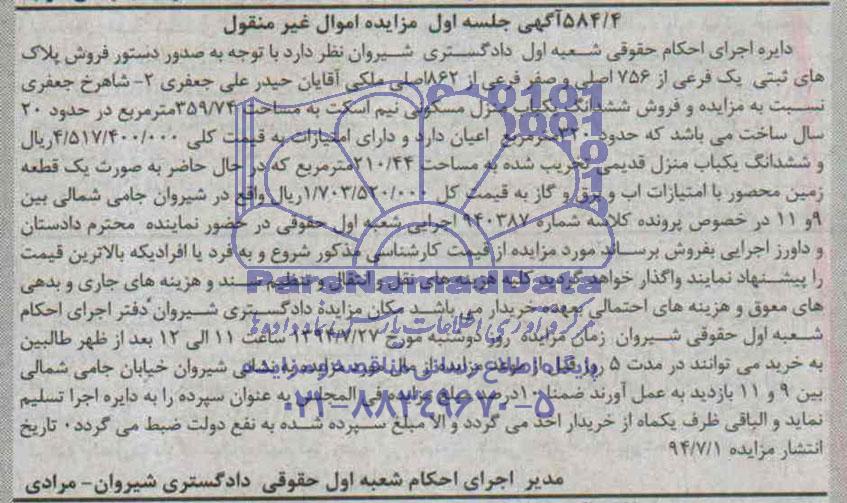 ۵۸۴/۴آگهی جلسه اول مزایده اموال غیر منقول
دایره اجرای احکام حقوقی شعبه اول دادگستری شیروان نظر دارد با توجه به صدور دستور فروش پلاک
های ثبتی یک فرعی از ۷۵۶ اصلی و صفر فرعی از ۸۶۲اصلی ملکی آقایان حیدر علی جعفری ۲- شاهرخ جعفری
نسبت به مزایده و فروش ششدانگ یکباب منزل مسکونی نیم اسکت به مساحت ۳۵۹/۷۴مترمربع در حدود ۲۰
سال ساخت می باشد که حدود ۳۲۰مترمربع اعیان دارد و دارای امتیازات به قیمت کلی ۴/۵۱۷/۴۰۰/۰۰۰ریال
و ششدانگ یکباب منزل قدیمی تخریب شده به مساحت ۲۱۰/۴۴مترمربع که در حال حاضر به صورت یک قطعه
زمین محصور با امتیازات اب و برق و گاز به قیمت کل ۱/۷۰۳/۵۲۰/۰۰۰ریال واقع در شیروان جامی شمالی بین
۹و ۱۱ در خصوص پرونده کلاسه شماره ۹۴۰۳۸۷ اجرایی شعبه اول حقوقی در حضور نماینده محترم دادستان
و داورز اجرایی بفروش برساند مورد مزایده از قیمت کارشناسی مذکور شروع و به فرد یا افرادیکه بالاترین قیمت
را پیشنهاد نمایند واگذار خواهد گردید کلیه هزینه های نقل و انتقال و تنظیم سند و هزینه های جاری و بدهی
های معوق و هزینه های احتمالی بعهده خریدار می باشد مکان مزایده دادگستری شیروان دفتر اجرای احکام
شعبه اول حقوقی شیروان زمان مزایده روز دوشنبه مورخ ۱۳۹۴/۷/۲۷ ساعت ۱۱ الی ۱۲ بعد از ظهر طالبین
به خرید می توانند در مدت ۵ روز قبل از موعد مزایده از مال مورد مزایده به نشانی شیروان خیابان جامی شمالی
بین ۹ و ۱۱ بازدید به عمل آورند ضمنا ۱۰درصد مبلغ مزایده فی المجلس به عنوان سپرده را به دایره اجرا تسلیم
نماید و الباقی ظرف یکماه از خریدار اخذ می گردد و الا مبلغ سپرده شده به نفع دولت ضبط می گردد۰ تاریخ
انتشار مزایده ۹۴/۷/۱
مدیر اجرای احکام شعبه اول حقوقی دادگستری شیروان- مرادی
ParsNamadData
مرکز فرآوری اطلاعات پارس نماد داده ها
پایگاه اطلاع رسانی مناقصه و مزایده
۰۲۱-۸۸۳۴۹۶۷۰-۵